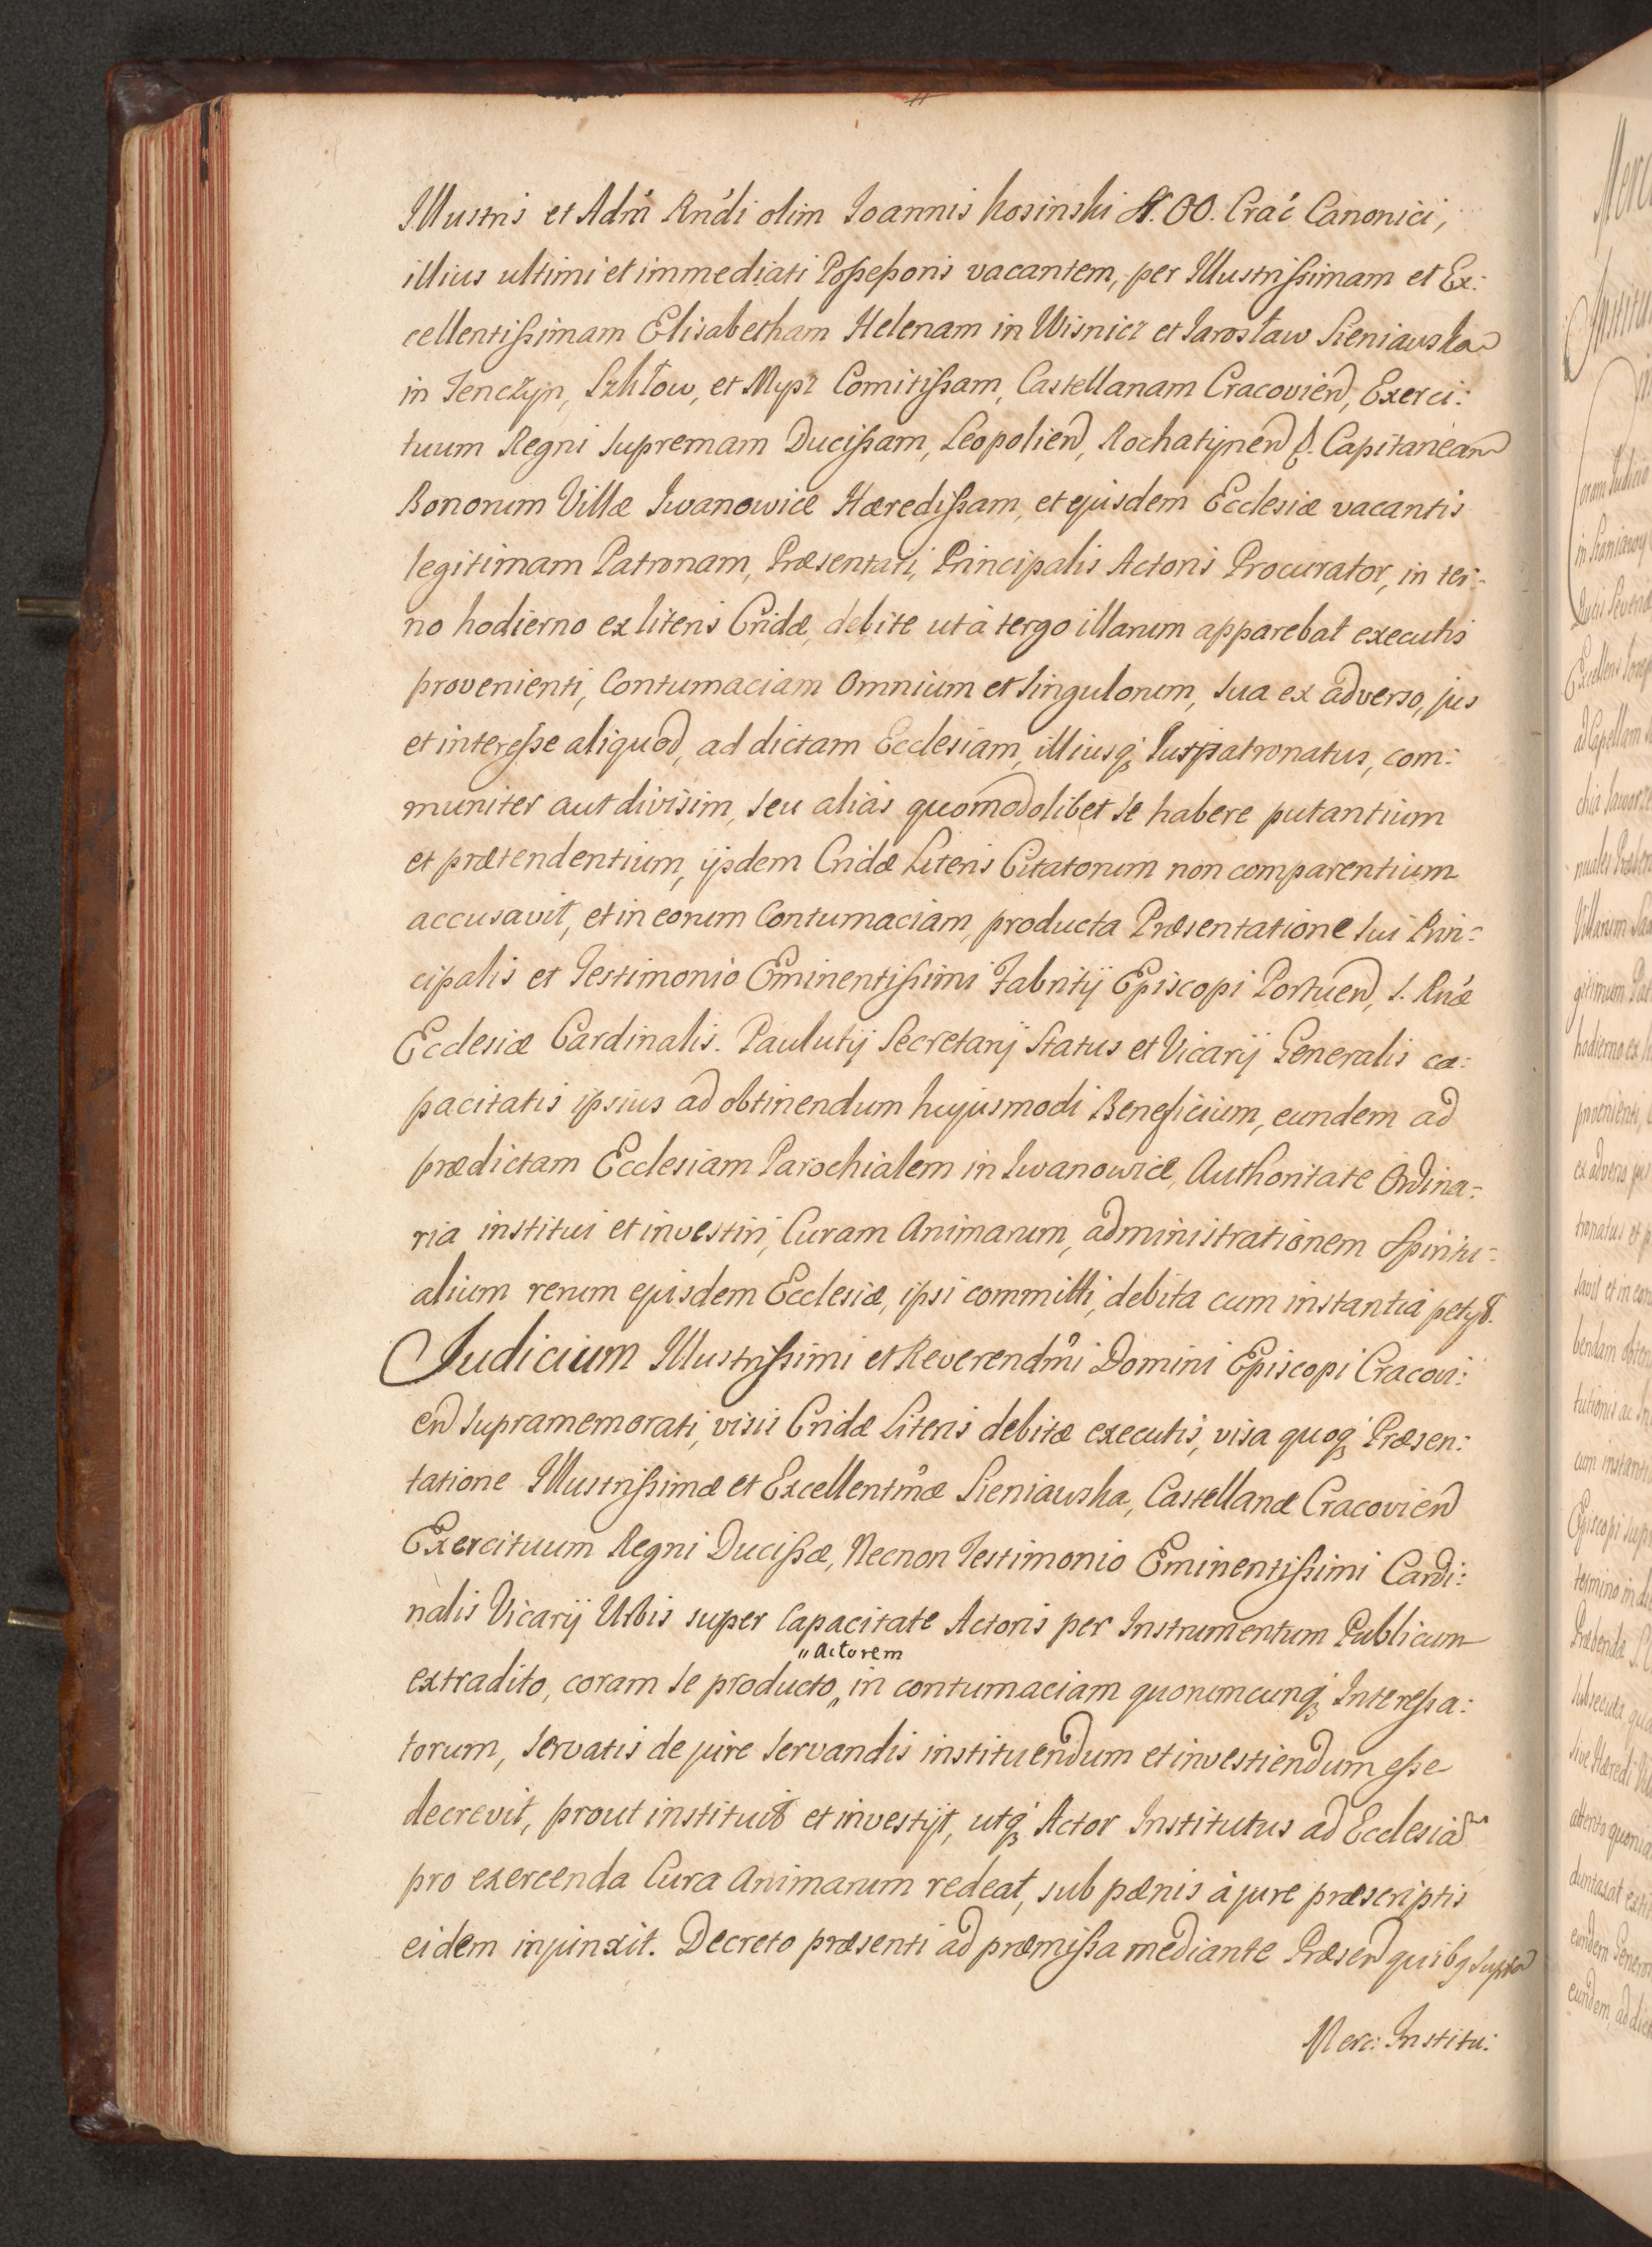 Illustris et Adm̃ Rńdi olim Ioannis Kosinski OO. Crać. Canonici,
illius ultimi et immediati Possessoris vacantem, per Illustrissimam et Ex:
cellentissimam Elisabetham Helenam in Wisnicz et Jarosław Sieniawska
in Tenczyn, Szkłow, et Mysz Comitissam, Castellanam Cracovień, Exerci:
tuum Regni supremam Ducissam, Leopolień, Rochatyneń Capitaneam
Bonorum Villæ Iwanowice Hæredissam, et ejusdem Ecclesiæ vacantis
legitimam Patronam, Præsentati, Principalis Actoris Procurator, in ter:
no hodierno ex literis Cridæ, debite ut à tergo illarum apparebat executis
provenienti, Contumaciam Omnium et singulorum, sua ex adverso, jus
et interesse aliquod, ad dictam Ecclesiam, illiusq; Juspatronatus, com:
muniter aut divisim, seu alias quomodolibet se habere putantium
et prætendentium, ijsdem Cridæ Literis Citatorum non comparentium
accusavit, et in eorum Contumaciam, producta Præsentatione sui Prin:
cipalis et Testimonio Eminentissimi Fabritij Episcopi Portueń, S. Rńæ
Ecclesiæ Cardinalis. Paulutij Secretarij Status et Vicarij Generalis ca:
pacitatis ipsius ad obtinendum hujusmodi Beneficium, eundem ad
prædictam Ecclesiam Parochialem in Iwanowice, Authoritate Ordina:
ria institui et investiri, Curam Animarum, administrationem Spiritu:
alium rerum ejusdem Ecclesiæ, ipsi committi, debita cum instantia petijt.
Judicium Illustrissimi et Reverendm̃i Domini Episcopi Cracovi:
eń supramemorati, visis Cridæ Literis debitæ executis, visa quoq; Præsen:
tatione Illustrissimæ et Excellentm̃æ Sieniawska, Castellanæ Cracovień
Exercituum Regni Ducissæ, Necnon Testimonio Eminentissimi Cardi:
nalis Vicarij Urbis super Capacitate Actoris per Instrumentum Publicum
„ Actorem
extradito, coram se producto „ in contumaciam quorumcunq; Interessa:
torum, servatis de jure servandis instituendum et investiendum esse
decrevit, prout instituit et investijt, utq; Actor Institutus ad Ecclesiam
pro exercenda Cura Animarum redeat, sub pænis à jure præscriptis
eidem injunxit. Decreto præsenti ad præmissa mediante Præseń quibq supra
Merc: Institu: